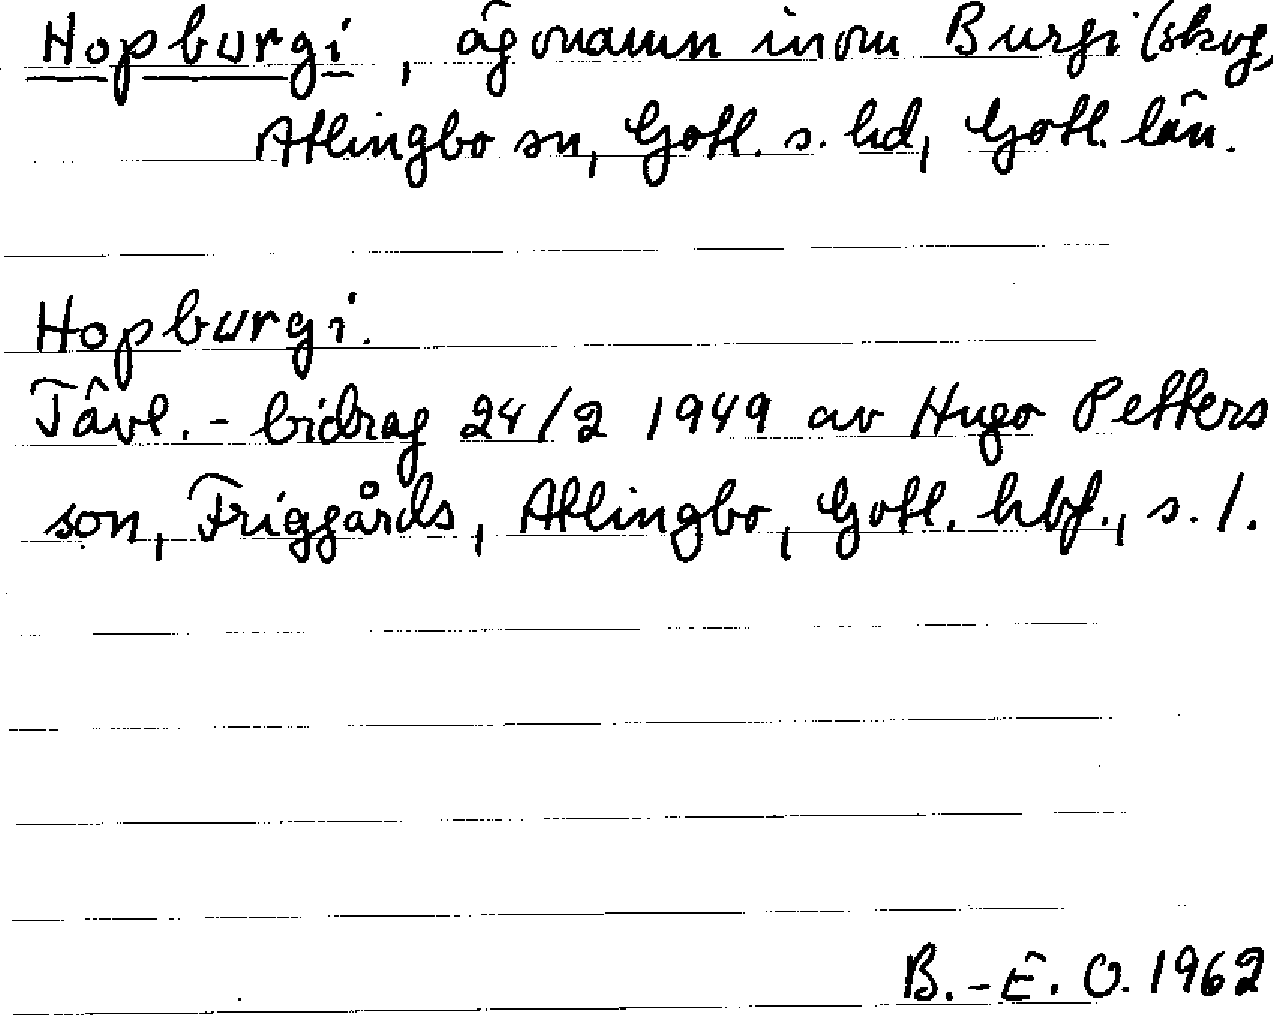 Hopburgi, ägonamn inom Burgi (skog,
Atlingbo sn, Gotl. s. hd, Gotl. län.
Hopburgi.
Tävl.-bidrag 24/2 1949 av Hugo Petters
son, Friggårds, Atlingbo, Gotl. hbf., s. 1.
B.-E. O. 1962